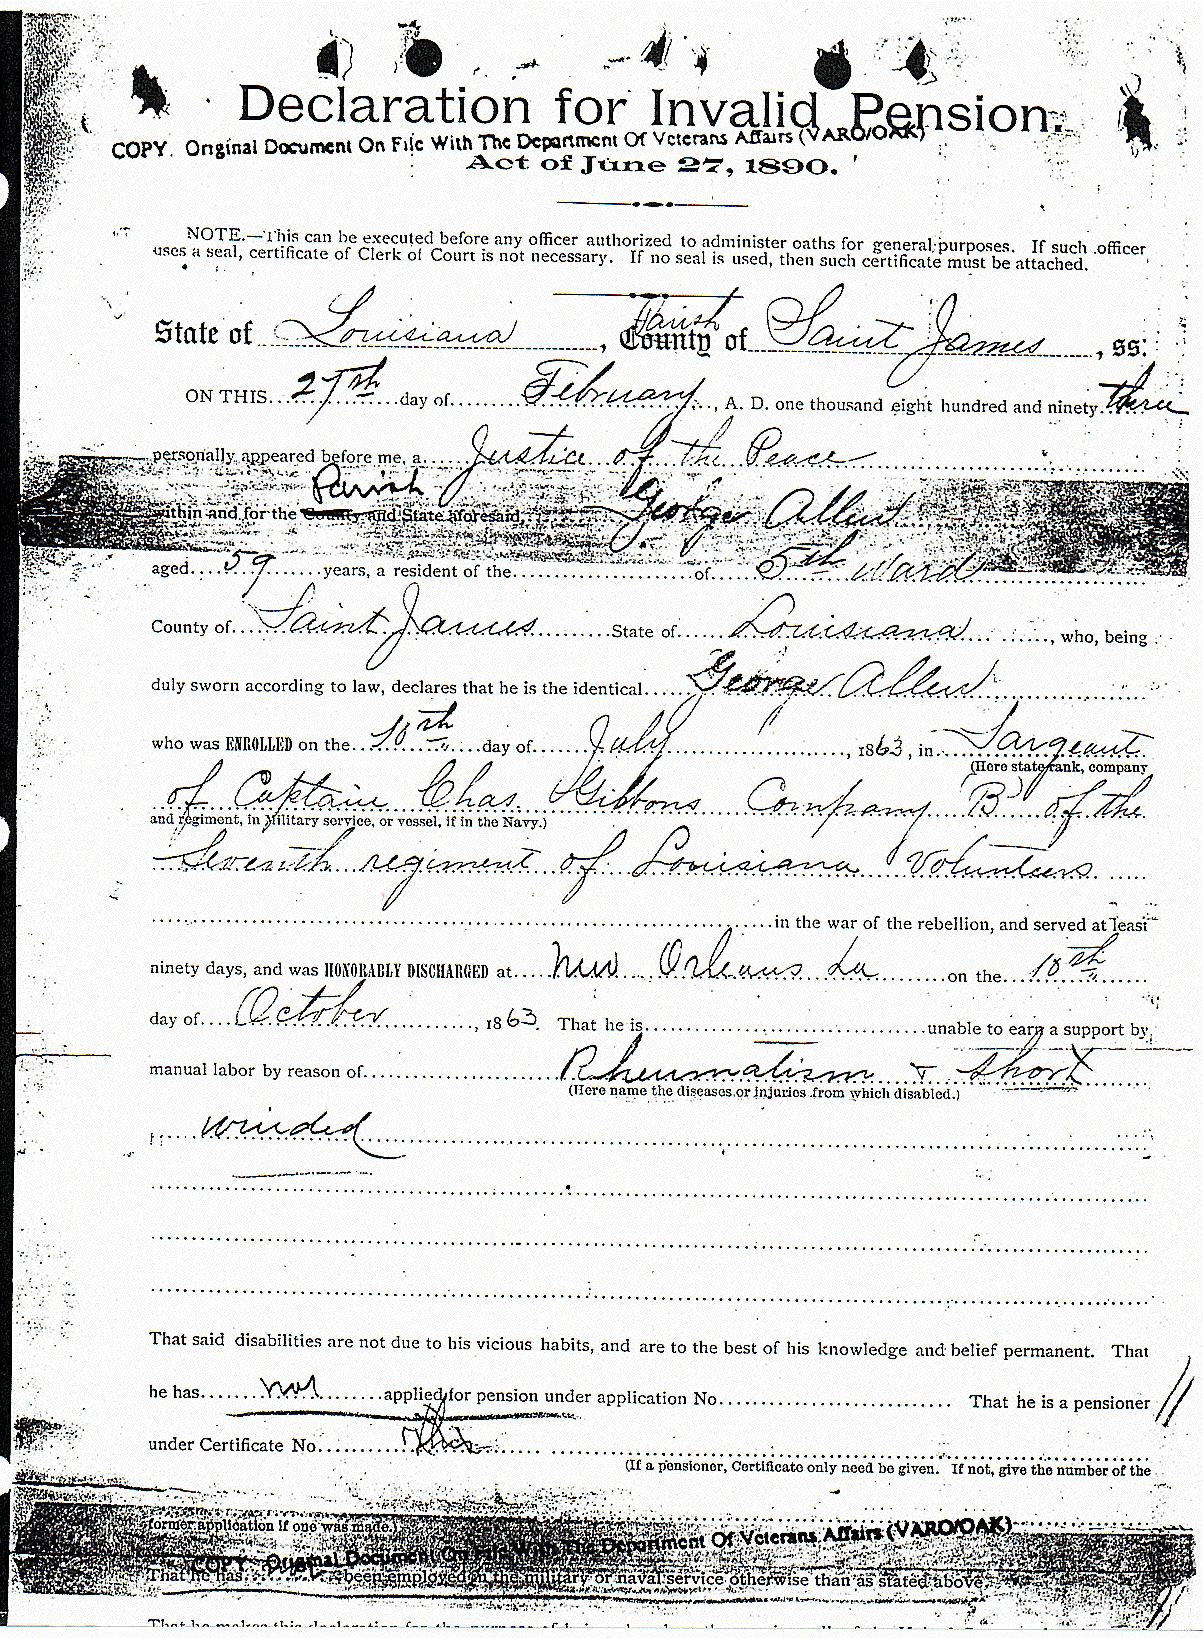 Declaration for Invalid Pension.
COPY. Original Document On File With The Department Of Veterans Affairs (VARO/OAK)
Act of June 27, 1890.
NOTE.—This can be executed before any officer authorized to administer oaths for general purposes. If such officer
uses a seal, certificate of Clerk of Court is not necessary. If no seal is used, then such certificate must be attached.
Parish
State of Louisiana, County of Saint James, ss:
ON THIS 27th day of February, A. D. one thousand eight hundred and ninety three
personally appeared before me, a Justice of the Peace
Parish
within and for the County and State aforesaid, George Allen
aged 59 years, a resident of the of 5th Ward
County of Saint James State of Louisiana, who, being
duly sworn according to law, declares that he is the identical George Allen
who was ENROLLED on the 10th day of July, 1863, in Sargeant
(Here state rank, company
of Captain Chas Gibbons Company B of the
and regiment, in Military service, or vessel, if in the Navy.)
Seventh regiment of Louisiana Volunteers
in the war of the rebellion, and served at least
ninety days, and was HONORABLY DISCHARGED at New Orleans La on the 10th
day of October, 1863. That he is unable to earn a support by
manual labor by reason of Rheumatism & short
(Here name the diseases or injuries from which disabled.)
winded
That said disabilities are not due to his vicious habits, and are to the best of his knowledge and belief permanent. That
he has not applied for pension under application No. That he is a pensioner
under Certificate No.
(If a pensioner, Certificate only need be given. If not, give the number of the
former application if one was made.)
COPY. Original Document On File With The Department Of Veterans Affairs (VARO/OAK)
That he has been employed in the military or naval service otherwise than as stated above,